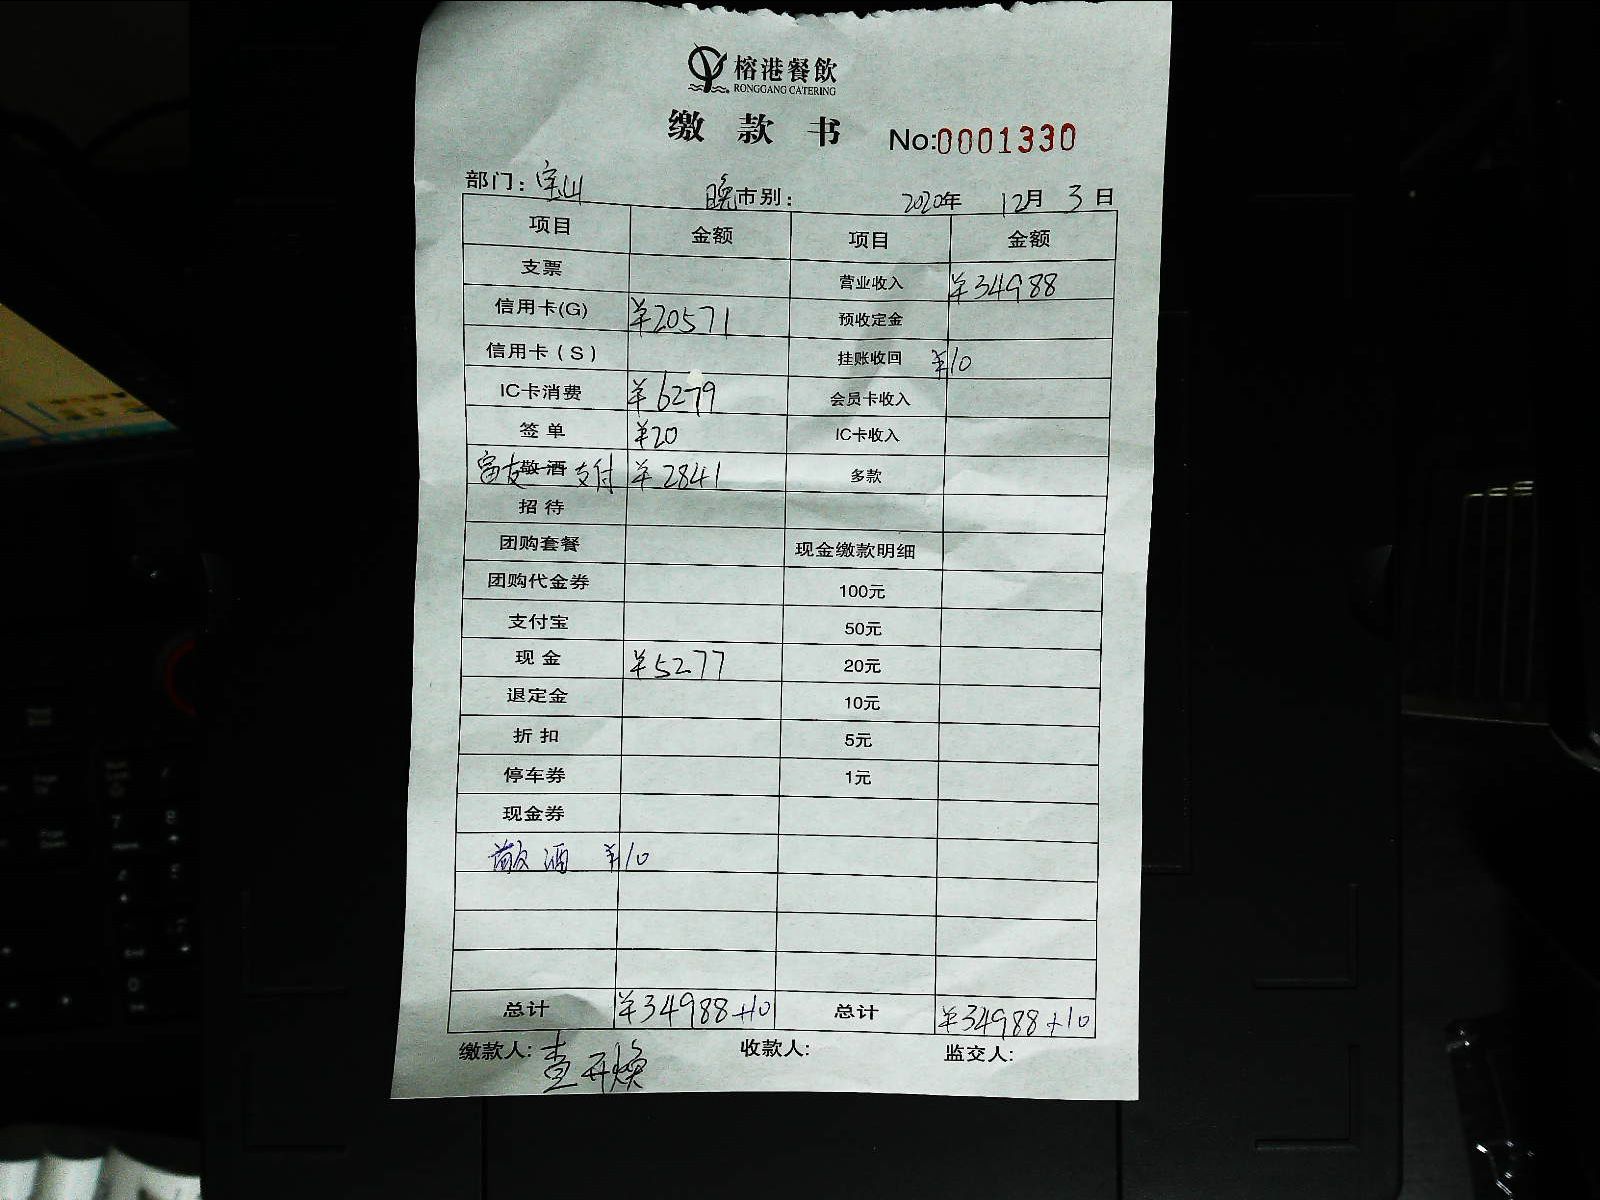 榕港餐飲
RONGGANG CATERING
缴款书 No:0001330
部门：宝山 晚市别： 2020年 12月 3日
项目 金额 项目 金额
支票 营业收入 ¥34988
信用卡(G) ¥20571 预收定金
信用卡（S） 挂账收回 ¥10
IC卡消费 ¥6279 会员卡收入
签单 ¥20 IC卡收入
富友敬酒支付 ¥2841 多款
招待
团购套餐 现金缴款明细
团购代金券 100元
支付宝 50元
现金 ¥5277 20元
退定金 10元
折扣 5元
停车券 1元
现金券
散酒 ¥10
总计 ¥34988+10 总计 ¥34988+10
缴款人: 收款人: 监交人: